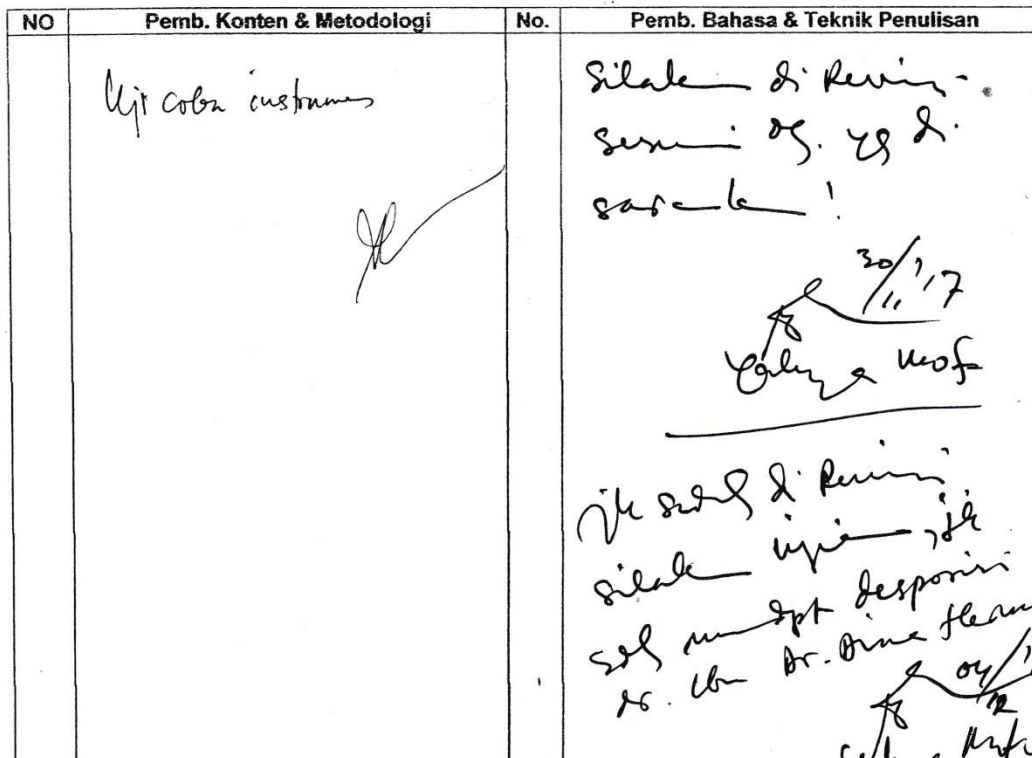 NO Pemb. Konten & Metodologi No. Pemb. Bahasa & Teknik Penulisan
Uji coba instrumen
Silakan di Revisi
sesuai dg. yg di
sarankan !
30/11 '17
jk sudah di Revisi
silakan ujian, jk
sdh mendpt desposisi
dr. Ibu Dr. Dina
04/12